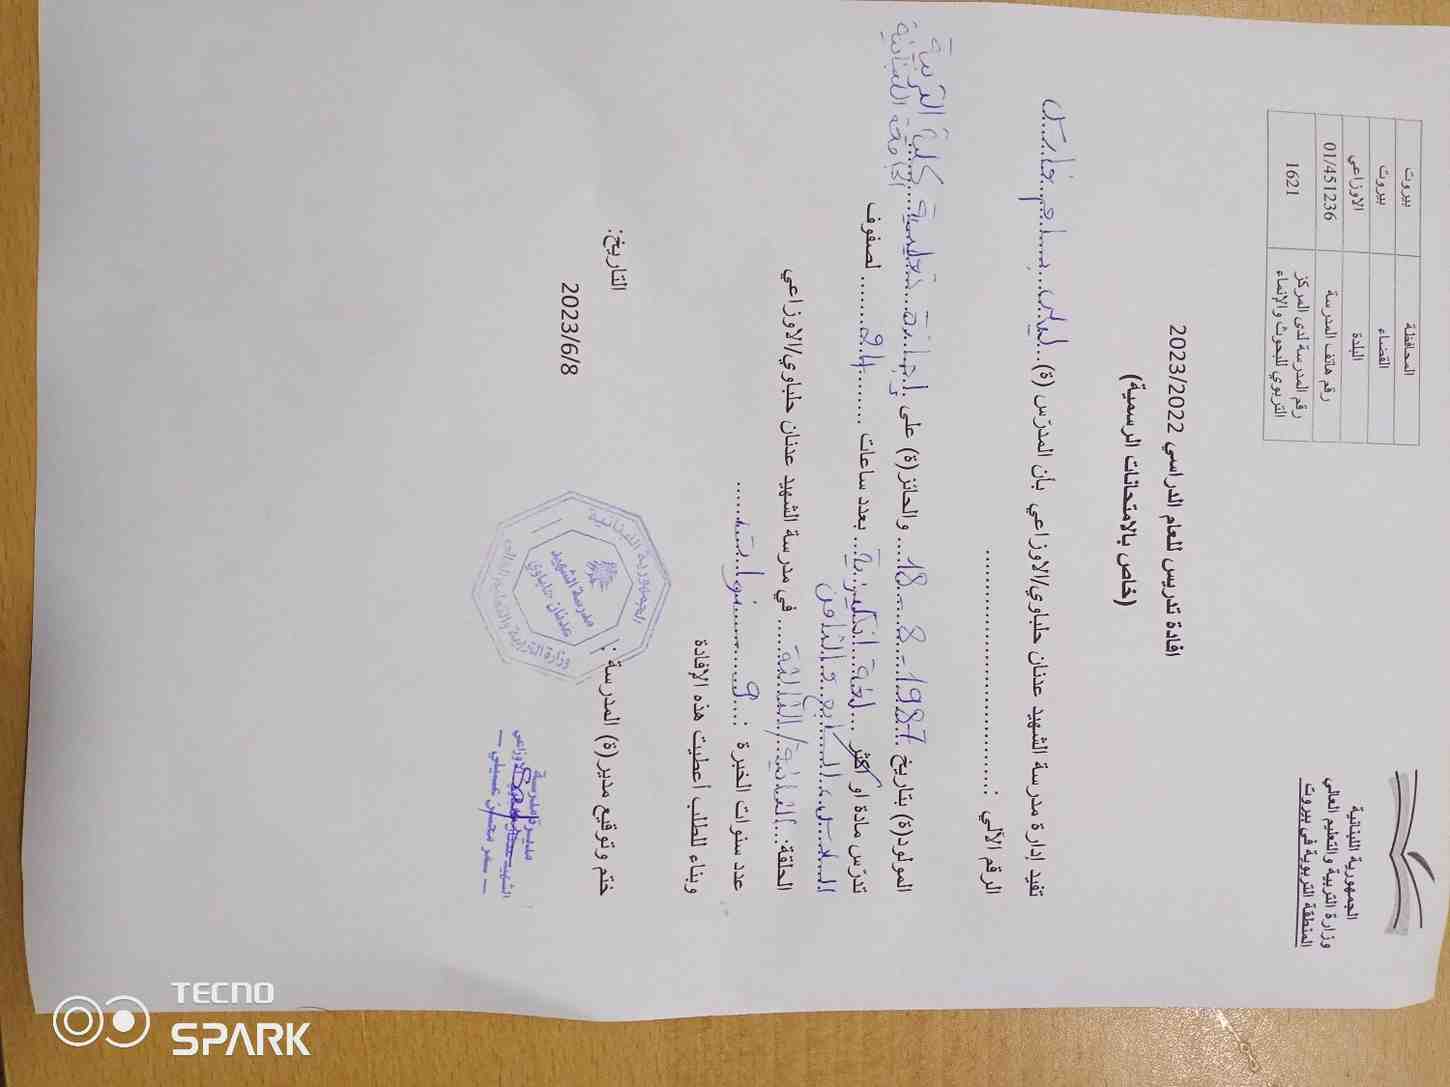 الجمهورية اللبنانية
وزارة التربية والتعليم العالي
المنطقة التربوية في بيروت
المحافظة بيروت
القضاء بيروت
البلدة الاوزاعي
رقم هاتف المدرسة 01/451236
رقم المدرسة لدى المركز التربوي للبحوث والإنماء 1621
افادة تدريس للعام الدراسي 2023/2022
(خاص بالامتحانات الرسمية)
تفيد إدارة مدرسة الشهيد عدنان حلباوي/الاوزاعي بأن المدرّس (ة)... ليلى بسام فارس
الرقم الآلي :
المولود(ة) بتاريخ 18-8-1987 والحائز(ة) على إجازة تعليمية كلية التربية
الجامعة اللبنانية
تدرّس مادة او اكثر... لغة انكليزية... بعدد ساعات ...24... لصفوف
السادس السابع والثامن
الحلقة:... الثانية/الثالثة ... في مدرسة الشهيد عدنان حلباوي/الاوزاعي
عدد سنوات الخبرة :... 9 سنوات
وبناء للطلب أعطيت هذه الإفادة
ختم وتوقيع مدير(ة) المدرسة :
التاريخ:
2023/6/8
الجمهورية اللبنانية
وزارة التربية والتعليم العالي
مدرسة الشهيد
عدنان حلباوي
مديرة مدرسة
TECNO
SPARK